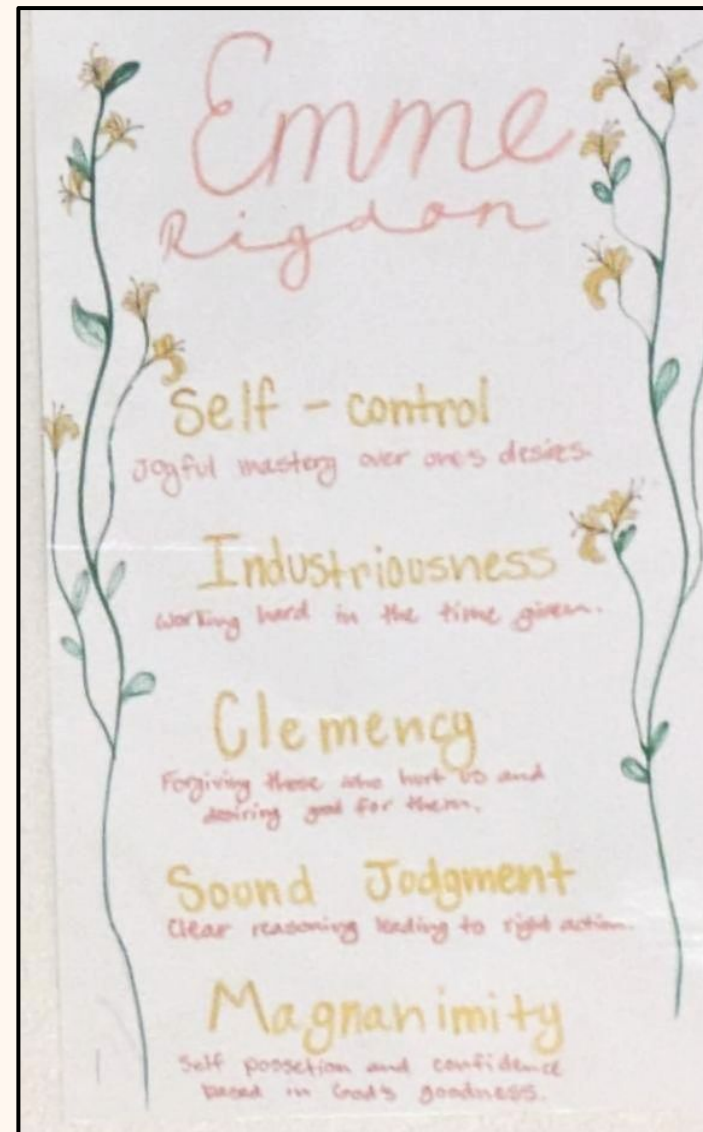 Emme
Rigdon
Self - control
Joyful mastery over one's desires.
Industriousness
Working hard in the time given.
Clemency
Forgiving those who hurt us and
desiring good for them.
Sound Judgment
Clear reasoning leading to right action.
Magnanimity
Self possetion and confidence
based in God's goodness.